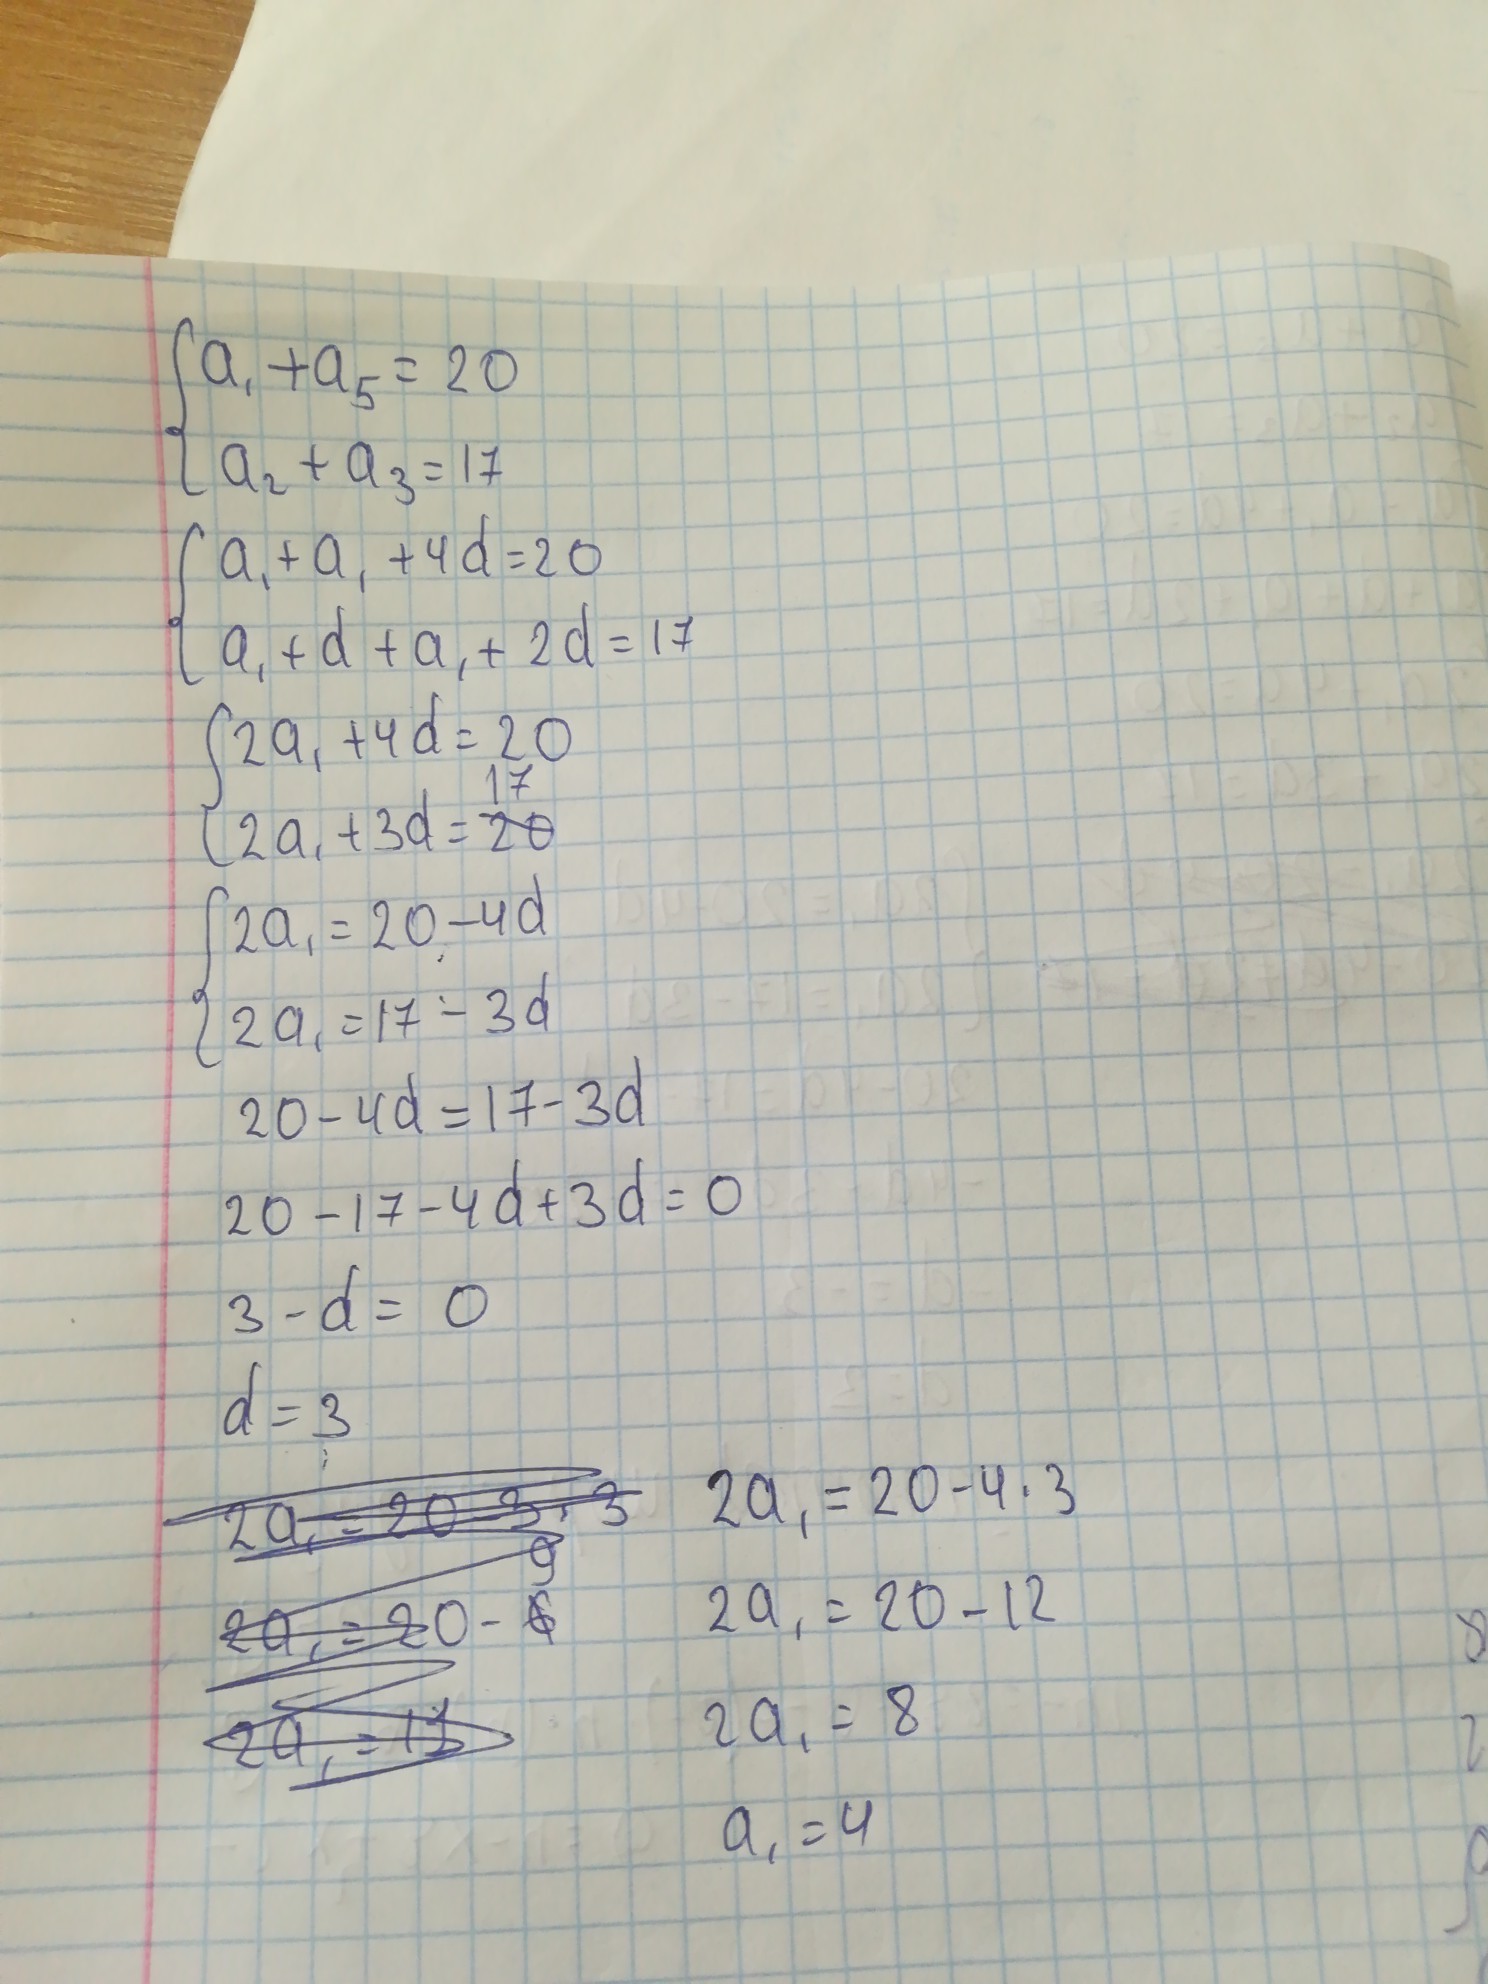 a₁ + a₅ = 20
a₂ + a₃ = 17
a₁ + a₁ + 4d = 20
a₁ + d + a₁ + 2d = 17
2a₁ + 4d = 20
17
2a₁ + 3d = 20
2a₁ = 20 - 4d
2a₁ = 17 - 3d
20 - 4d = 17 - 3d
20 - 17 - 4d + 3d = 0
3 - d = 0
d = 3
2a₁ = 20 - 3 · 3
9
2a₁ = 20 - 6
2a₁ = 20 - 4 · 3
2a₁ = 20 - 12
2a₁ = 8
a₁ = 4